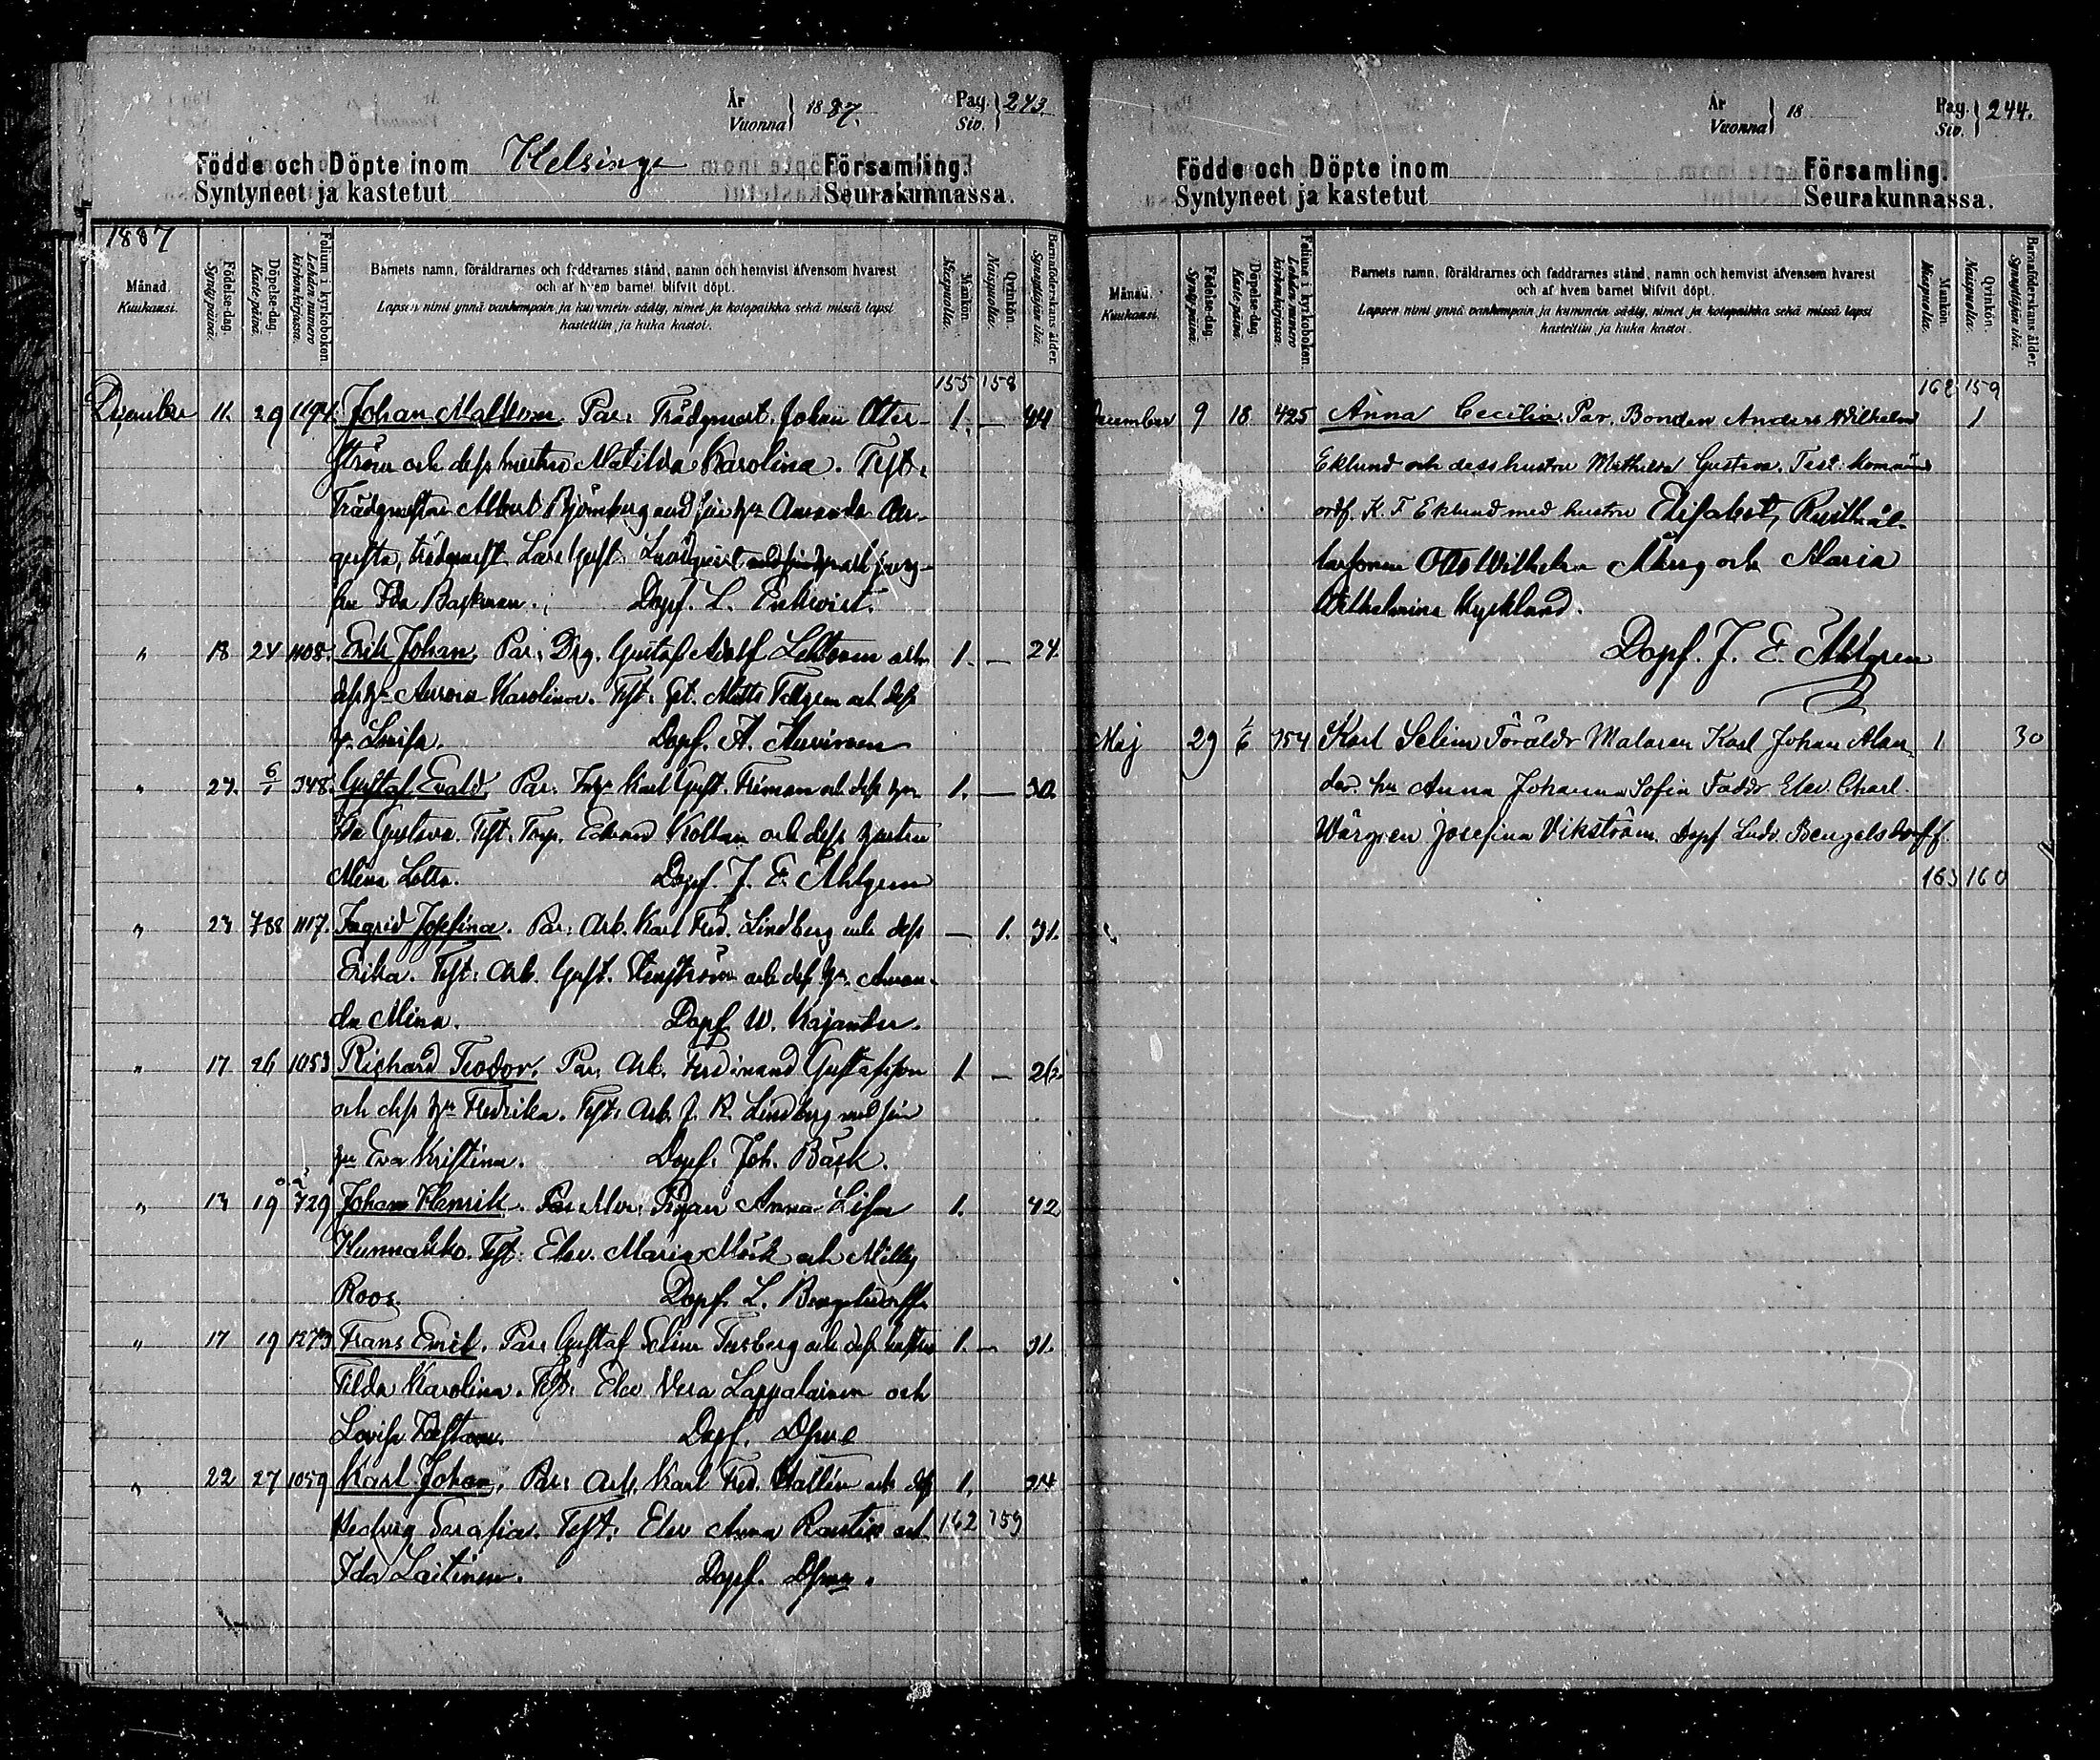 År
Vuonna } 1887.
Pag.
Siv. } 243.
Födde och Döpte inom Helsinge Församling.
Syntyneet ja kastetut Seurakunnassa.
1887
Månad.
Kuukausi.
Födelse-dag.
Syntypäivä.
Döpelse-dag.
Kaste-päivä.
Folium i kyrkoboken.
Lehden numero kirkonkirjassa.
Barnets namn, föräldrarnes och faddrarnes stånd, namn och hemvist äfvensom hvarest
och af hvem barnet blifvit döpt.
Lapsen nimi ynnä vanhempain ja kummein sääty, nimet ja kotopaikka sekä missä lapsi
kastettiin, ja kuka kastoi.
Mankön.
Miespuolia.
Qvinkön.
Naispuolia.
Barnaföderskans ålder.
Synnyttäjän ikä.
155 158
December 11. 29 1194. Johan Par. Trädgmest. Johan Otter- 1. — 44
ström och dess hustru Matilda Karolina. Test.
Trädgmestar Albert Björnberg med sin hu Amanda Au-
gusta, trädgmest. Lars Gust. och jung-
fru Ida Backman. Dopf. L. Enkvist.
" 18 24 1108. Erik Johan. Par. Drg. Gustaf Adolf och 1. — 24.
dess hu Aurora Karolina. Test. Matts Tellgren och dess
hu Lovisa. Dopf. A. Auvinen
" 27. 6/1 348. Gustaf Evald. Par. Karl Gust. Friman och dess hu 1. — 30.
Ida Gustava. Test. Torp. Edvard och dess hustru
Mina Lotta. Dopf. J. E. Ahlgren
" 23 1117. Ingrid Josefina. Par. Arb. Karl Fred. Lindberg och dess — 1. 31.
Erika. Test. Arb. Gust. Stenström och dess hu. Aman-
da Mina. Dopf. W. Kajander.
" 17 26 1053 Richard Teodor. Par. Arb. Ferdinand Gustafsson 1 — 26.
och dess hu Fredrika. Test. Arb. J. R. Lindberg med sin
hu Eva Kristina. Dopf. Joh. Bäck.
" 13 19 729 Johan Henrik. Par. Pigan Anna Lisa 1. 42
Hunnakko. Test. Elev. Maria Mörk och Milly
Roos. Dopf. L. Bengelsdorff.
" 17 19 1273 Frans Emil. Par. Gustaf Selim Forsberg och dess hustru 1. — 31.
Tilda Karolina. Test. Elev. Vera Lappalainen och
Lovisa Dopf. Dsme
" 22 27 1059 Karl Johan. Par. Arb. Karl Fred. Hallén och dess 1.
Hedvig Serafia. Test. Elev Anna och 162 159
Ida Laitinen. Dopf. Dsme.
År
Vuonna } 18
Pag.
Siv. } 244.
Födde och Döpte inom Församling.
Syntyneet ja kastetut Seurakunnassa.
Månad.
Kuukausi.
Födelse-dag.
Syntypäivä.
Döpelse-dag.
Kaste-päivä.
Folium i kyrkoboken.
Lehden numero kirkonkirjassa.
Barnets namn, föräldrarnes och faddrarnes stånd, namn och hemvist äfvensom hvarest
och af hvem barnet blifvit döpt.
Lapsen nimi ynnä vanhempain ja kummein sääty, nimet ja kotopaikka sekä missä lapsi
kastettiin, ja kuka kastoi.
Mankön.
Miespuolia.
Qvinkön.
Naispuolia.
Barnaföderskans ålder.
Synnyttäjän ikä.
162 159
December 9 18 425 Anna Cecilia. Par. Bonden Anders Wilhelm 1
Eklund och dess hustru Mathilda Gustava. Test. Komuns
ordf. K. F. Eklund med hustru Elisabet, Rusthål-
larsonen Otto Wilhelm Åberg och Maria
Wilhelmina Kycklund.
Dopf. J. E. Ahlgren
Maj 29 1/6 754 Karl Selim Föräldr Malaren Karl Johan Alan- 1 30
der hu Anna Johanna Sofia Faddr. Elev. Charl.
Wärgren Josefina Vikström. Dopf. Ludv. Bengelsdorff.
163 160